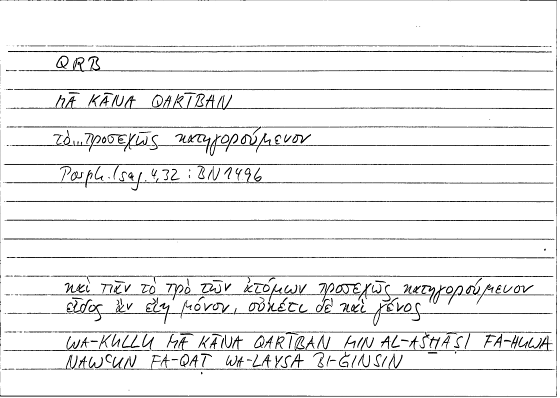 QRB
MĀ KĀNA QARĪBAN
τὸ...προσεχῶς κατηγορούμενον
Porph. Isag. 4,32 : BN 1496
καὶ πᾶν τὸ πρὸ τῶν ἀτόμων προσεχῶς κατηγορούμενον
εἶδος ἂν εἴη μόνον, οὐκέτι δὲ καὶ γένος
WA-KULLU MĀ KĀNA QARĪBAN MIN AL-AŠḪĀṢI FA-HUWA
NAWʿUN FA-QAṬ WA-LAYSA BI-ǦINSIN